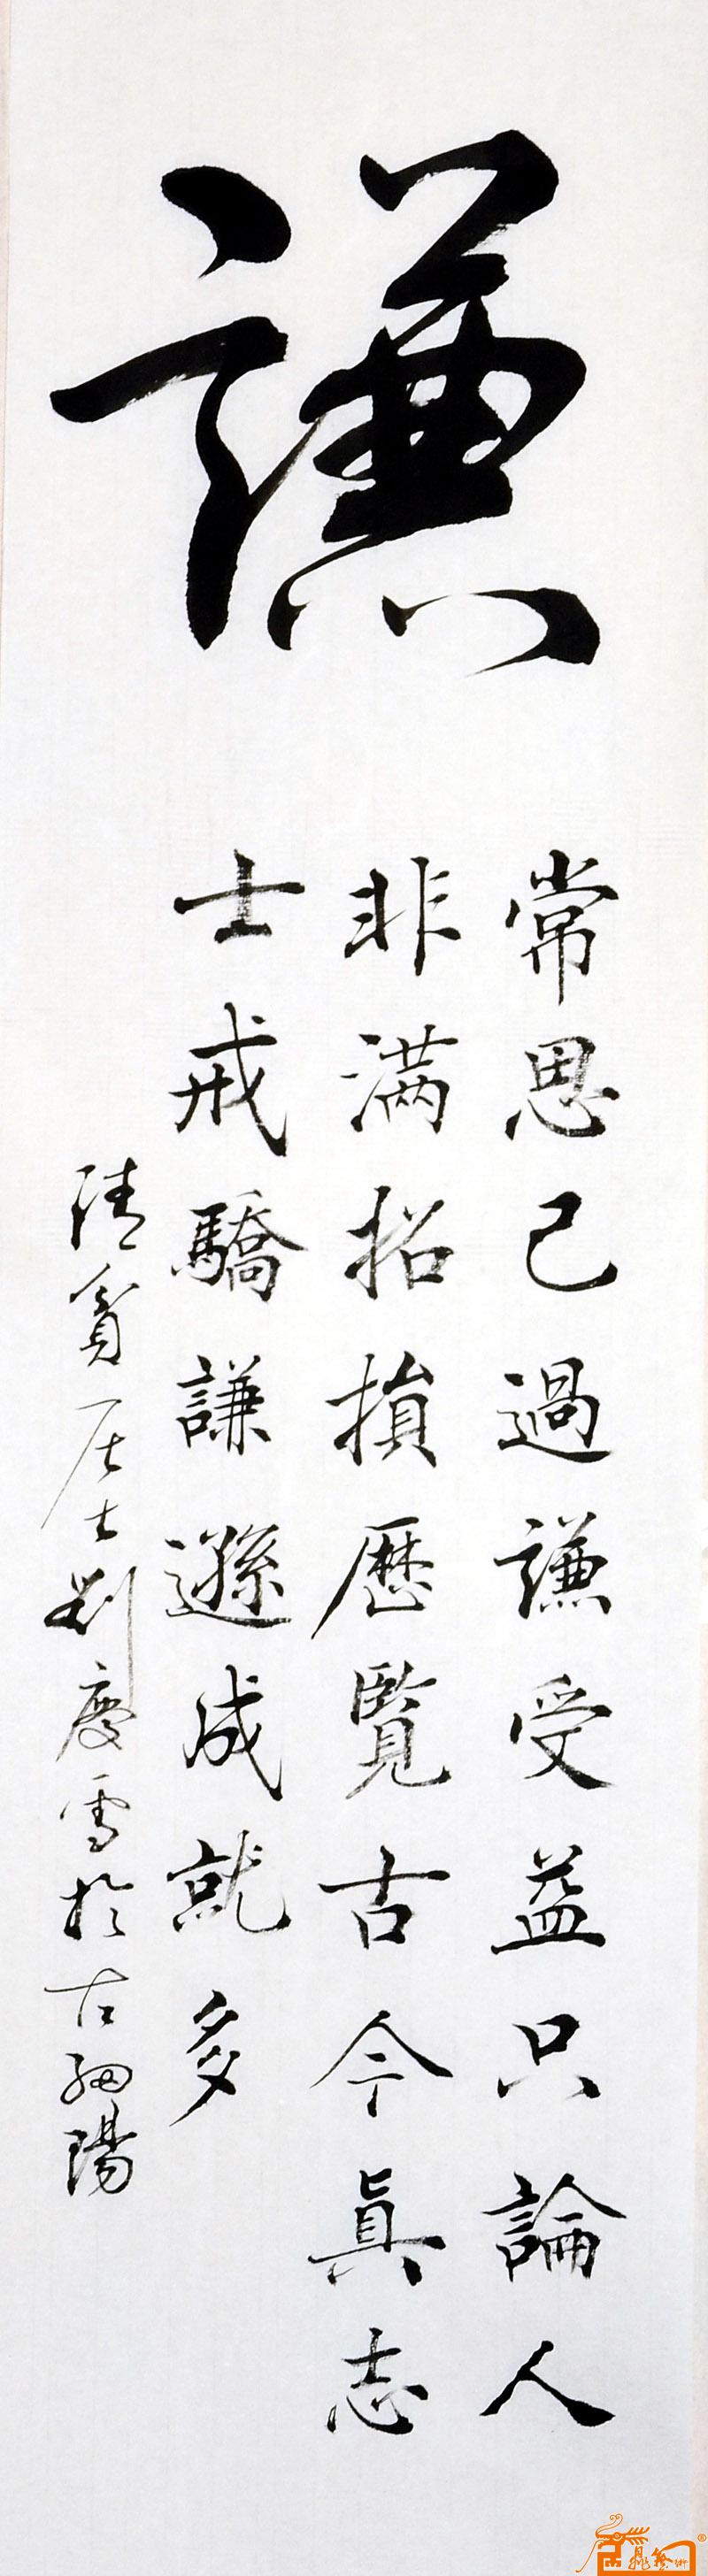 謙
常思己過謙受益只論人
非满招損歷覽古今真志
士戒驕謙遜成就多
清貧居士劉慶雪於古細陽